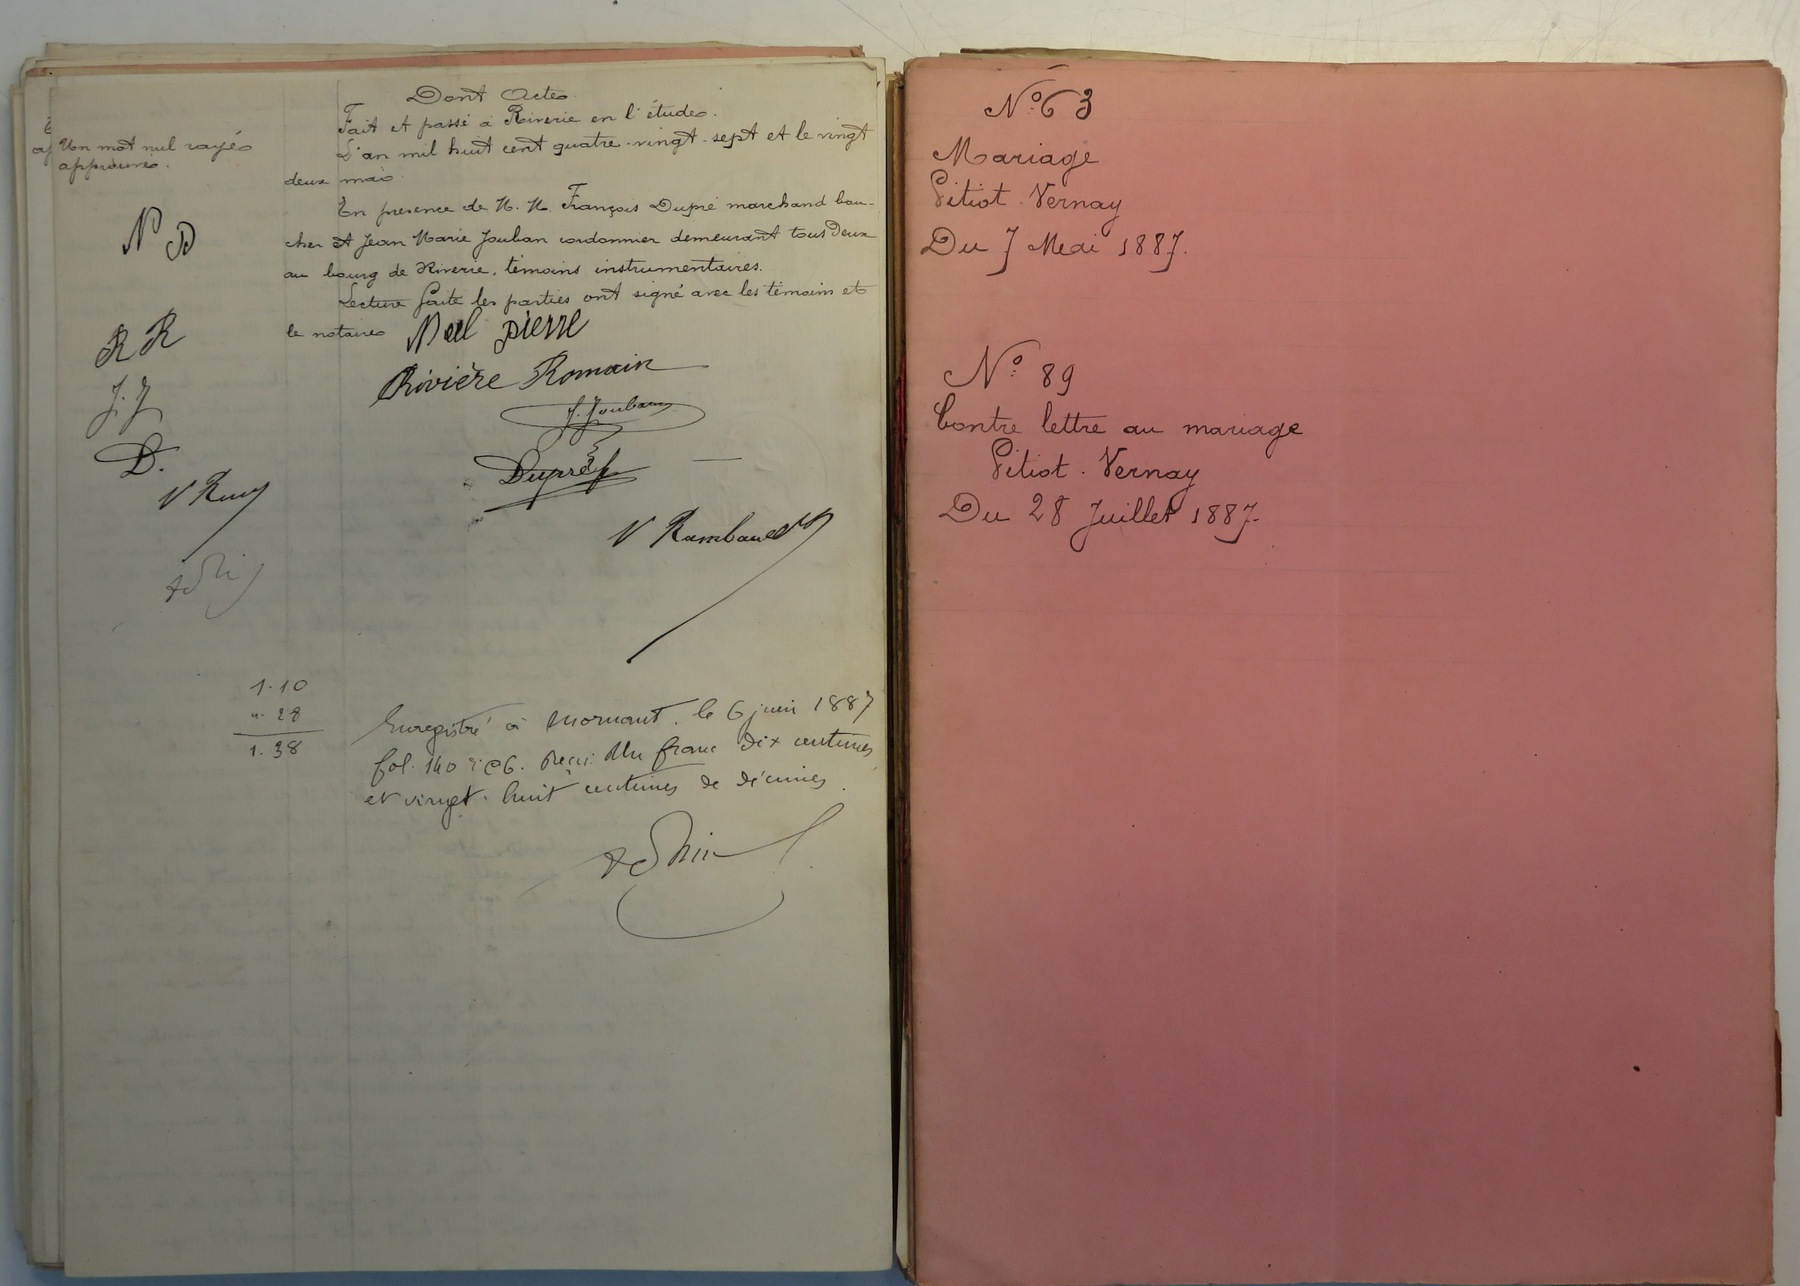 Dont Acte
Fait et passé à Riverie en l'étude.
L'an mil huit cent quatre-vingt-sept et le vingt
deux mai
En presence de M. M. François Dupré marchand bou-
cher et Jean Marie Jouban cordonnier demeurant tous deux
au bourg de Riverie, témoins instrumentaires.
Lecture faite les parties ont signé avec les témoins et
le notaire Noel pierre
Rivière Romain
J. Jouban
Dupré
V Rambaud
Un mot nul rayé
approuvé.
N P
R R
J. J
D.
1.10
". 28
1.38
Enregistré à Mornant. le 6 juin 1887
fol. 140 C 6. Reçu Un franc dix centimes
et vingt-huit centimes de décimes.
N° 63
Mariage
Pitiot Vernay
Du 7 Mai 1887.
N° 89
Contre lettre au mariage
Pitiot. Vernay
Du 28 Juillet 1887.